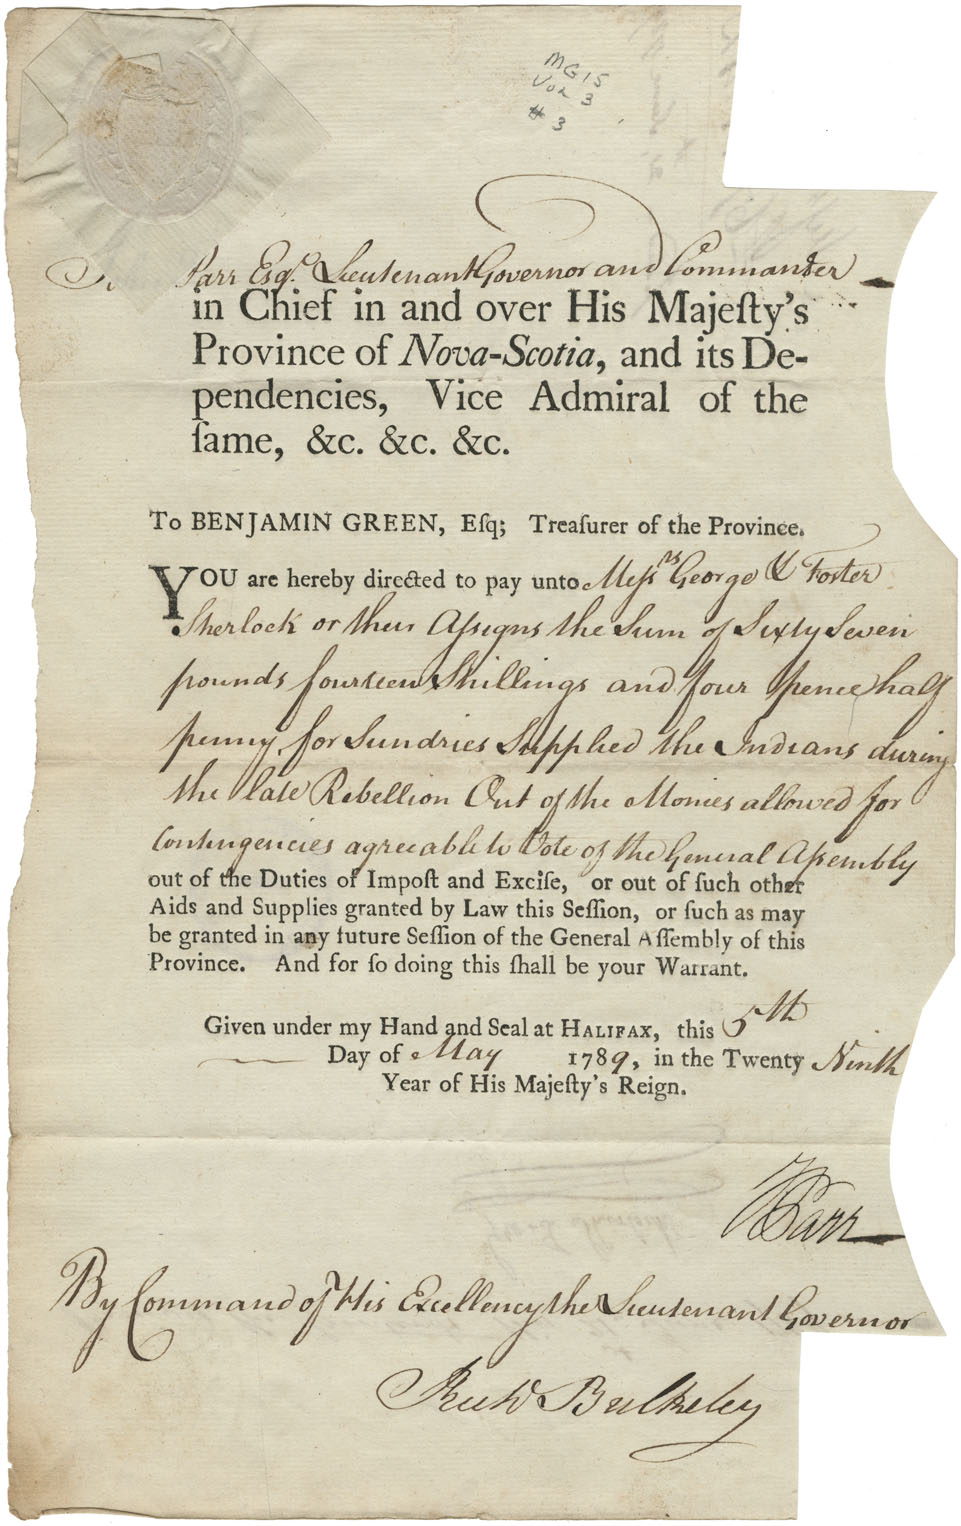 MG15
Vol 3
# 3
Parr Esqr. Lieutenant Governor and Commander
in Chief in and over His Majeſty's
Province of Nova-Scotia, and its De-
pendencies, Vice Admiral of the
ſame, &c. &c. &c.
To BENJAMIN GREEN, Eſq; Treaſurer of the Province.
YOU are hereby directed to pay unto Meſsrs George & Foster
Sherlock or their Aſsigns the Sum of Sixty Seven
pounds fourteen Shillings and four pence half
penny for Sundries Supplied the Indians during
the late Rebellion Out of the Monies allowed for
Contingencies agreeable to Vote of the General Aſsembly
out of the Duties of Impoſt and Exciſe, or out of ſuch other
Aids and Supplies granted by Law this Seſſion, or ſuch as may
be granted in any future Seſſion of the General Aſſembly of this
Province. And for ſo doing this ſhall be your Warrant.
Given under my Hand and Seal at HALIFAX, this 5th
Day of May 1789, in the Twenty Ninth
Year of His Majeſty's Reign.
Parr
By Command of His Excellency the Lieutenant Governor
Richd Bulkeley